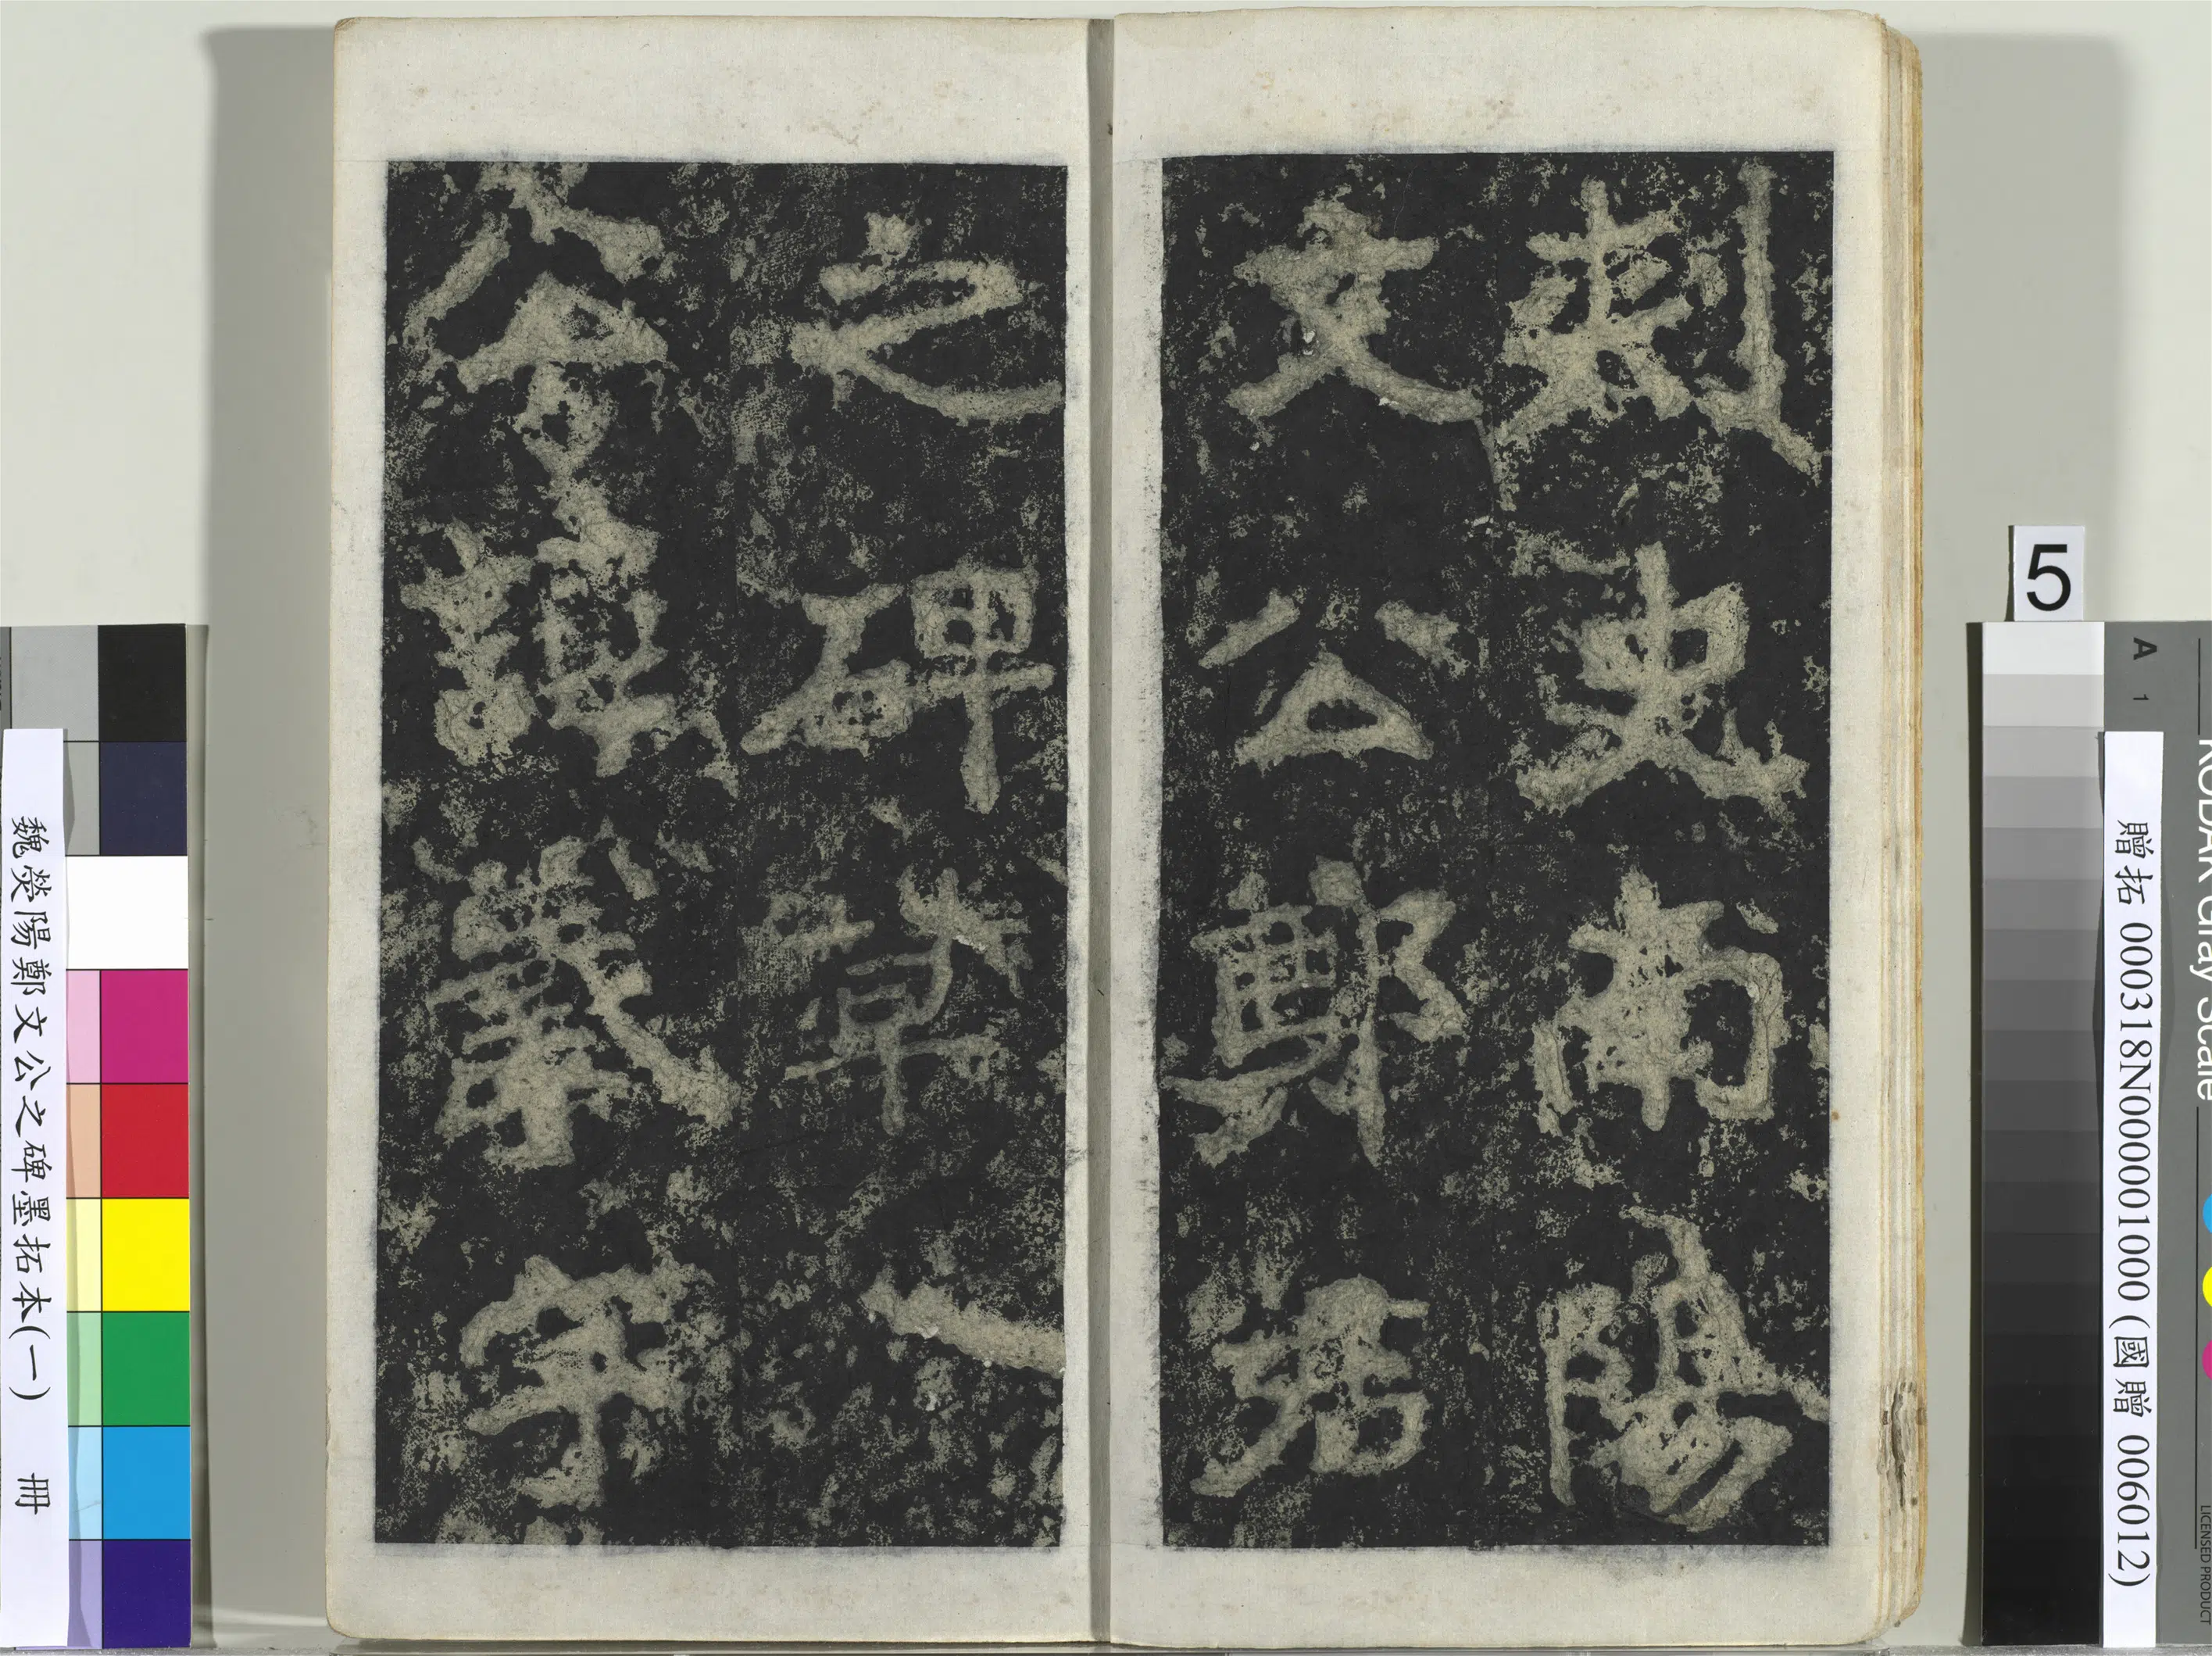 刺史南陽
文公鄭君
之碑草
公諱羲字
5
A 1
KODAK Gray Scale
LICENSED PRODUCT
贈拓 000318N000001000 (國贈 006012)
魏滎陽鄭文公之碑墨拓本(一) 冊